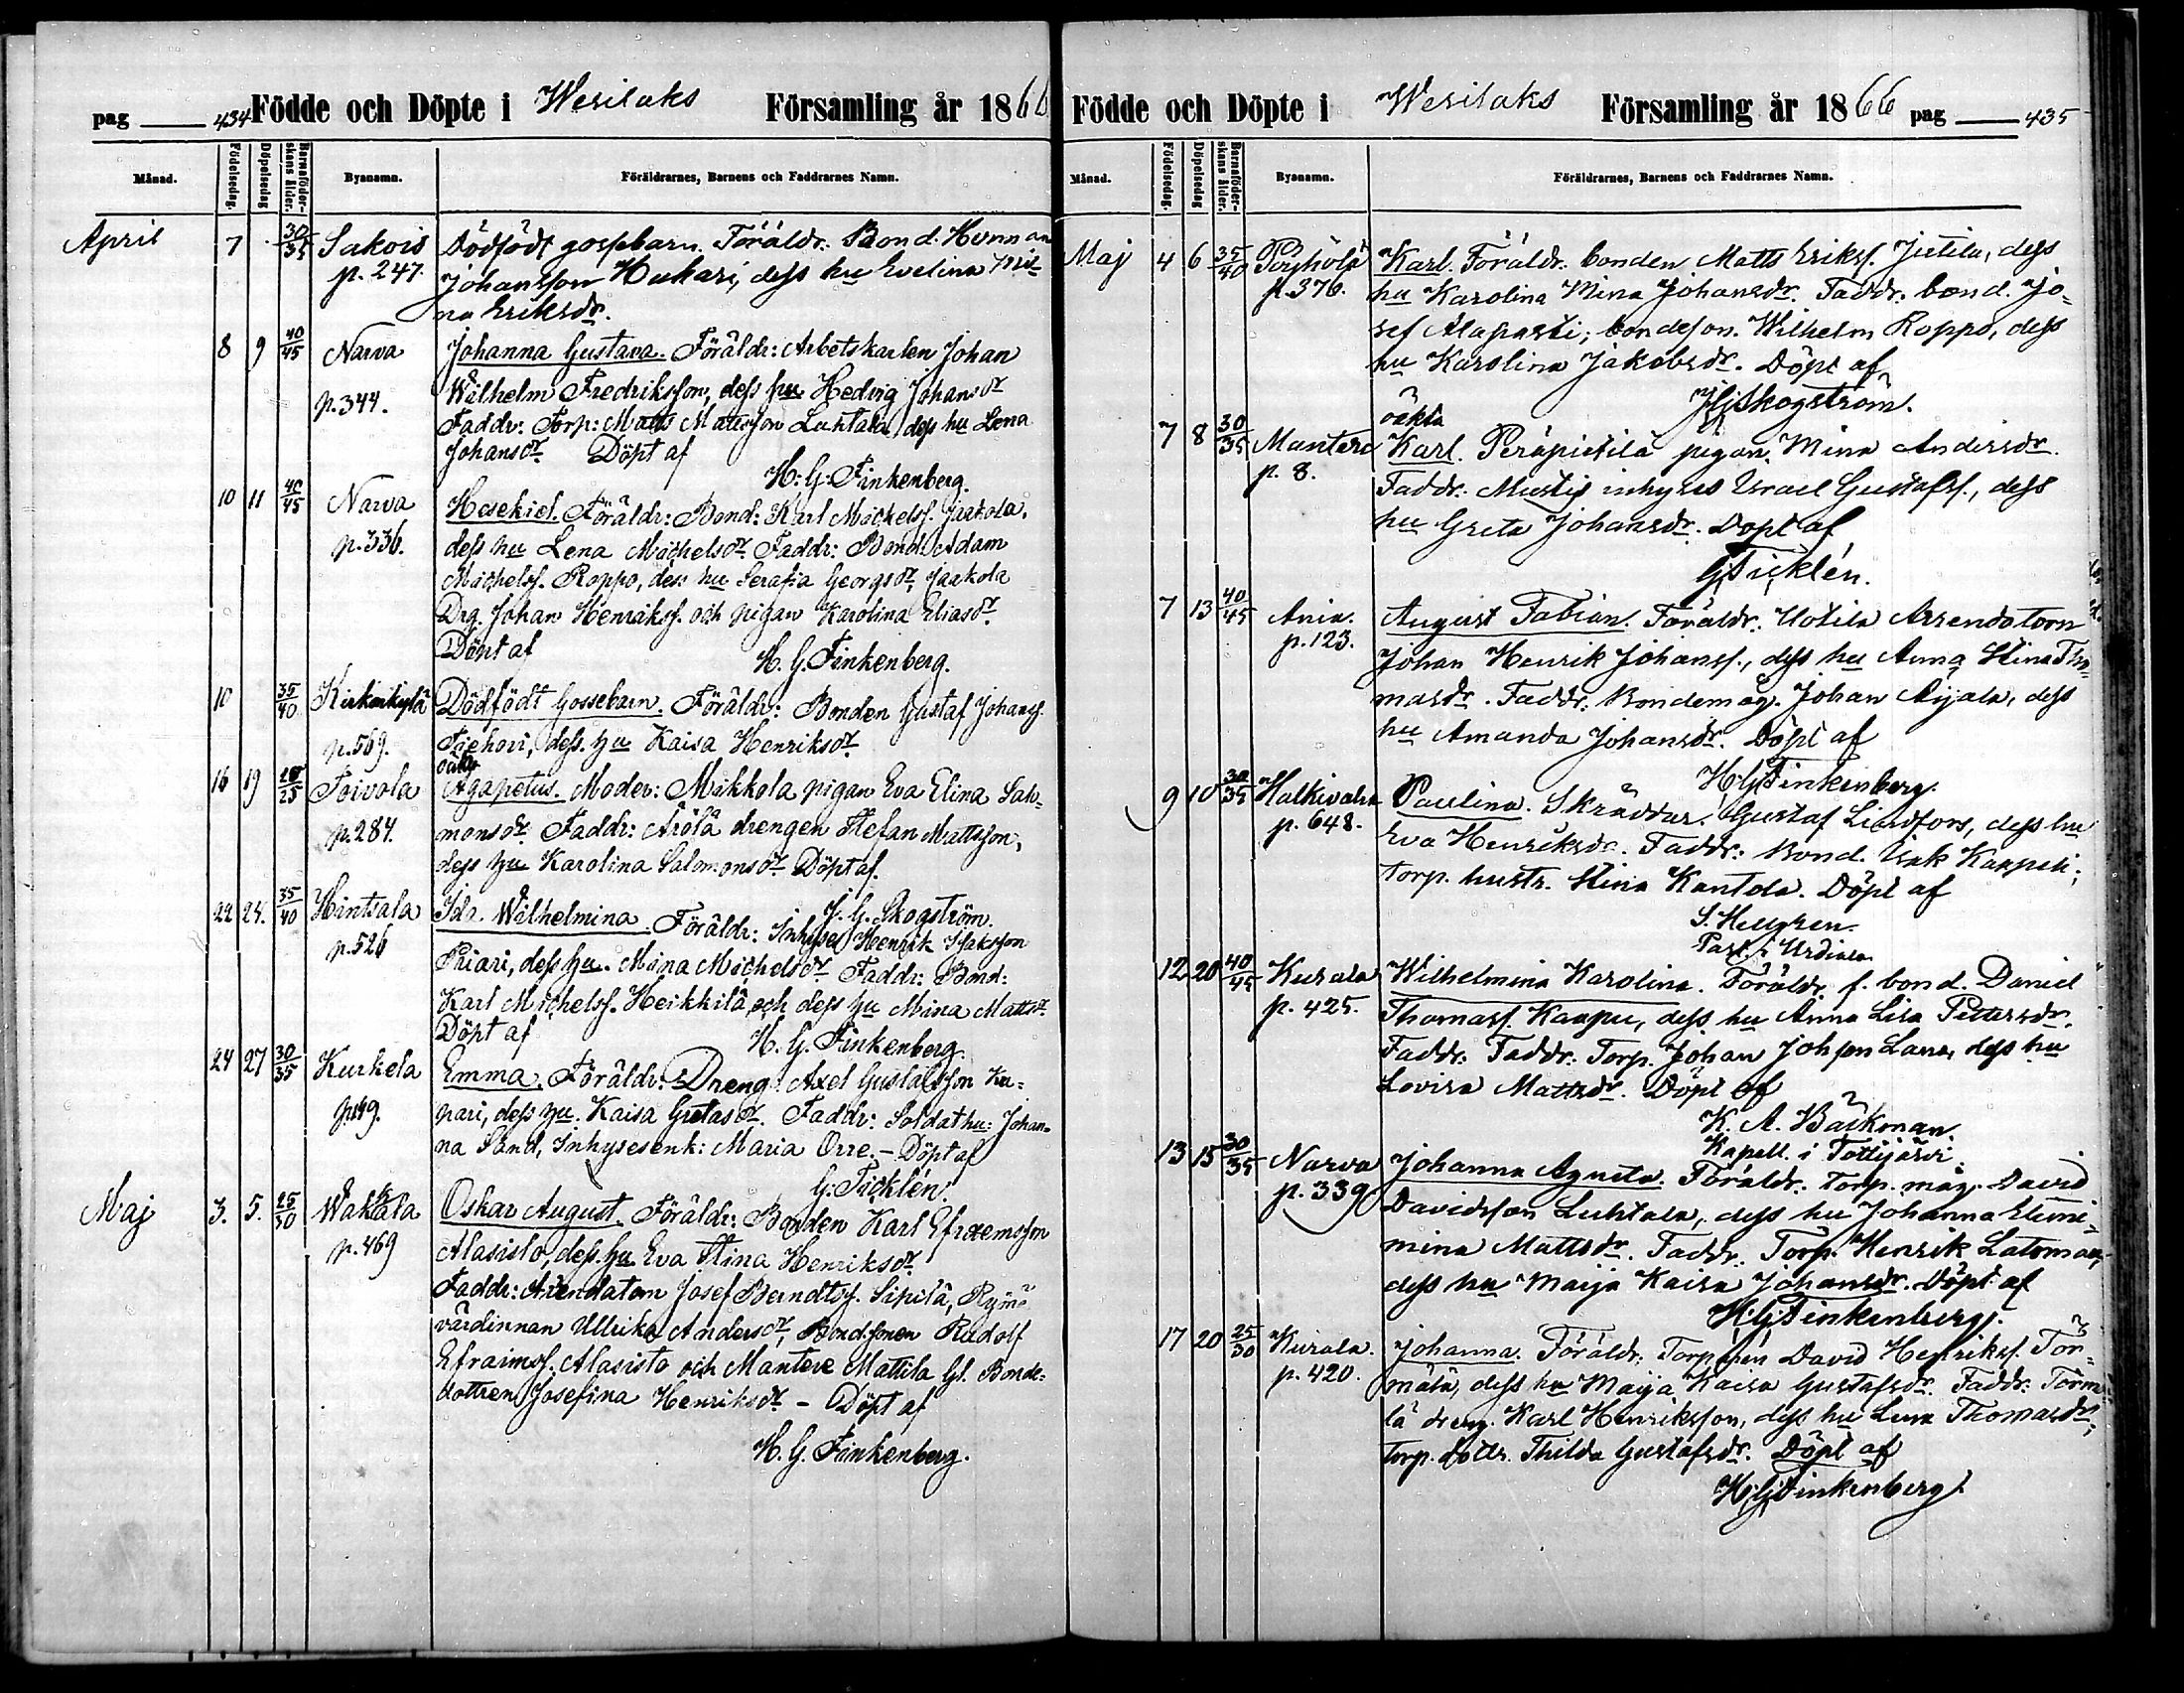 pag 434 Födde och Döpte i Wesilaks Församling år 1866
Månad. Födelsedag. Döpelsedag Barnaföderskans ålder. Byanamn. Föräldrarnes, Barnens och Faddrarnes Namn.
April 7 30/35 Sakois Dödfödt gossebarn. Föräldr: Bond. Herman
p. 247. Johansson Hukari, dess hu Evelina Mi-
na Eriksdr.
8 9 40/45 Narva Johanna Gustava. Föräldr: Arbetskarlen Johan
Wilhelm Fredriksson, dess hu Hedvig Johansdr
p. 344. Faddr: Torp: Matts Mattsson Luhtala, dess hu Lena
Johansdr. Döpt af
H. G. Finkenberg.
10 11 40/45 Narva Hesekiel. Föräldr: Bond: Karl Michelss. Jaakola,
p. 336. dess hu Lena Michelsdr Faddr: Bond: Adam
Michelss. Roppo, dess hu Serafia Georgsdr, Jaakola
Drg. Johan Henrikss. och pigan Karolina Eliasdr.
Döpt af
H. G. Finkenberg.
10 35/40 Kirkonkylä Dödfödt Gossebarn. Föräldr: Bonden Gustaf Johanss.
p. 569. dess hu Kaisa Henriksdr.
oäkta
16 19 20/25 Toivola Agapetus. Moder: Mikkola pigan Eva Elina Salo-
p. 284. monsdr. Faddr: Arölä drengen Stefan Mattsson,
dess hu Karolina Salomonsdr Döpt af.
J. G. Skogström.
22 24. 35/40 Hintsala Ida Wilhelmina. Föräldr: Inhyses Henrik Isaksson
p. 526 Priari, dess hu. Mina Michelsdr Faddr: Bond:
Karl Michelss. Heikkilä och dess hu Mina Mattsdr.
Döpt af
H. G. Finkenberg.
24 27 30/35 Kurkela Emma. Föräldr: Dreng: Axel Gustafsson Ku-
p. 49. pari, dess hu. Kaisa Gretasdr. Faddr: Soldathu: Johan-
na Sand, Inhysesenk: Maria Orre. - Döpt af
G: Ticklén.
Maj 3. 5. 25/30 Wakkala Oskar August. Föräldr: Bonden Karl Efraemsson
p. 469 Alasisto, dess hu Eva Stina Henriksdr.
Faddr: Arendatorn Josef Berndtss. Sipilä,
värdinnan Ullrika Andersdr, Bondsonen Rudolf
Efraimss. Alasisto och Mantere Mattila Gl. Bonde-
dottren Josefina Henriksdr - Döpt af
H. G. Finkenberg.
Födde och Döpte i Wesilaks Församling år 1866 pag 435
Månad. Födelsedag. Döpelsedag Barnaföderskans ålder. Byanamn. Föräldrarnes, Barnens och Faddrarnes Namn.
Maj 4 6 35/40 Pöyhölä Karl. Föräldr: bonden Matts Erikss. Jutila, dess
p. 376. hu Karolina Mina Johansdr. Faddr: bond. Jo-
sef Alapasti; bondeson. Wilhelm Roppo, dess
hu Karolina Jakobsdr. Döpt af
JGSkogström.
oäkta
7 8 30/35 Mantere Karl. Peräpietilä pigan Mina Andersdr.
p. 8. Faddr: Mustis inhyses Israel Gustafss., dess
hu Greta Johansdr. Döpt af
GTicklén.
7 13 40/45 Ania. August Fabian. Föräldr. Uotila Arrendatorn
p. 123. Johan Henrik Johanss., dess hu Anna Stina Tho-
masdr. Faddr: Bondemåg. Johan Äijälä, dess
hu Amanda Johansdr. Döpt af
HGFinkenberg.
9 10 30/35 Halkivaha Paulina. Skräddar. Gustaf Lindfors, dess hu
p. 648. Eva Henriksdr. Faddr: Bond. Isak Kaapeli;
torp. hustr. Stina Kantola. Döpt af
S. Hellgren
Past. i Urdiala
12 20 40/45 Kurala Wilhelmina Karolina. Föräldr. f. bond. Daniel
p. 425. Thomass. Kaapu, dess hu Anna Lisa Pettersdr.
Faddr: Faddr: Torp. Johan Johsson Lana, dess hu
Lovisa Mattsdr. Döpt af
K. A. Bäckman
Kapell. i Tottijärvi
13 15 30/35 Narva Johanna Agneta. Föräldr: torp. måg. David
p. 339 Davidsson Luhtala, dess hu Johanna
mina Mattsdr. Faddr. Torp. Henrik Latomäki,
dess hu Maija Kaisa Johansdr. Döpt af
HGFinkenberg.
17 20 25/30 Kurala. Johanna. Föräldr: Torp. David Henrikss. Tör-
p. 420. mälä, dess hu Maija Kaisa Gustafsdr. Faddr: Törmä-
lä dreng. Karl Henriksson, dess hu Lena Thomasdr,
torp. dottr. Thilda Gustafsdr. Döpt af
HGFinkenberg